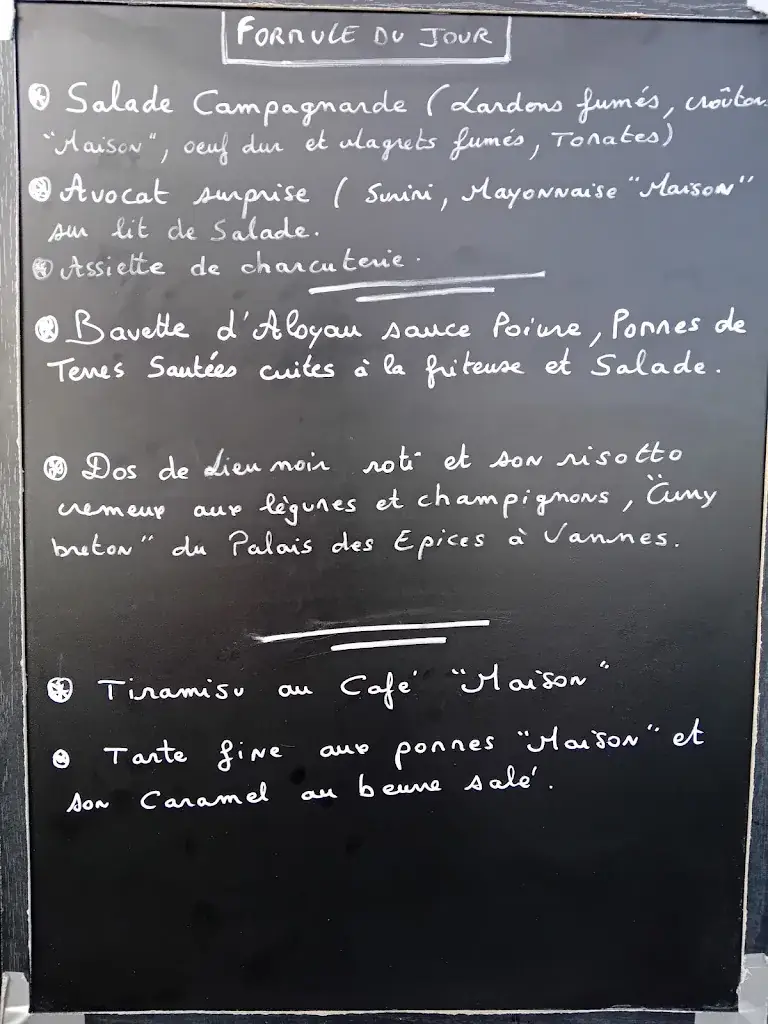 FORMULE DU JOUR
Salade Campagnarde (Lardons fumés, croûton
"Maison", oeuf dur et Magrets fumés, Tomates)
Avocat surprise ( Surimi, Mayonnaise "Maison"
sur lit de Salade.
Assiette de charcuterie.
Bavette d'Aloyau sauce Poivre, Pommes de
Terres Sautées cuites à la friteuse et Salade.
Dos de Lieu noir roti et son risotto
cremeux aux lègumes et champignons, "Curry
breton" du Palais des Epices à Vannes.
Tiramisu au Café "Maison"
Tarte fine aux pommes "Maison" et
son Caramel au beurre salé.